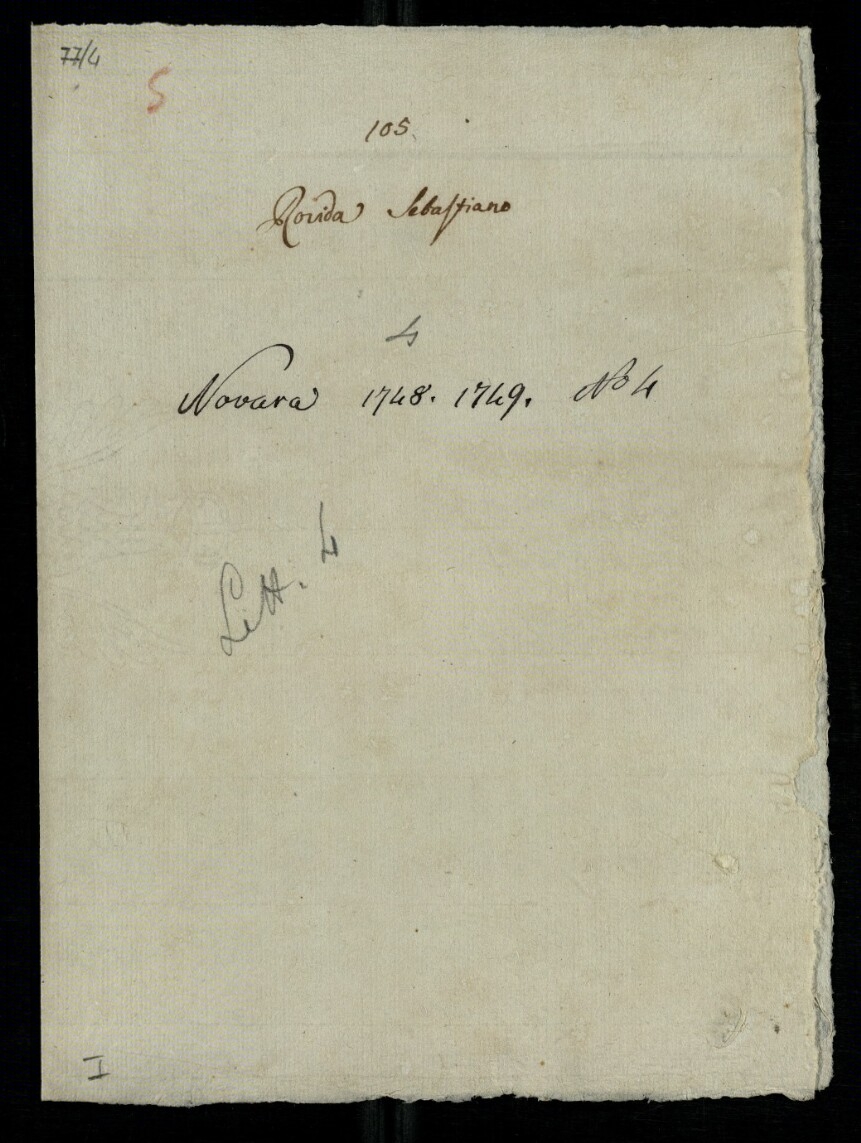 77/4
5
105.
Rovida Sebastiano
4
Novara 1748. 1749. No 4
Litt. 4
I